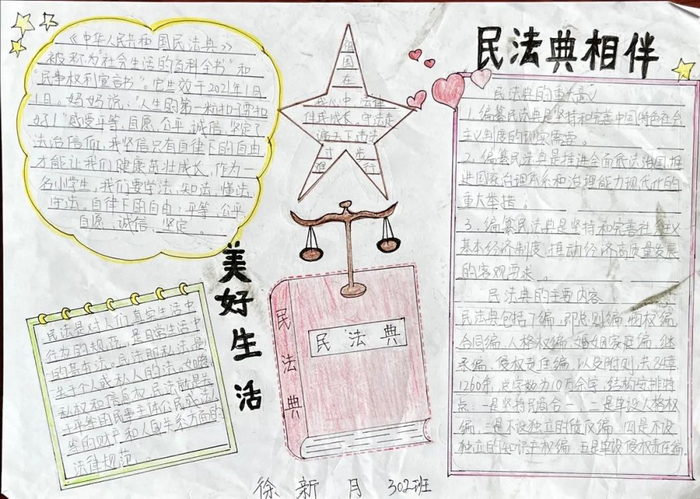 民法典相伴
美好生活
《中华人民共和国民法典》
被称为"社会生活的百科全书"和
"民事权利宣言书"。它生效于2021年1月
1日。妈妈说："人生的第一粒扣子扣
好!"感受平等、自愿、公平、诚信、坚定了
法治信仰,我坚信只有自律下的自由
才能让我们健康茁壮成长,作为一
名小学生,我们要学法、知法、懂法、
守法。自律下的自由:平等、公平、
自愿、诚信、坚定。
民法典的重大意义
1、编纂民法典是坚持和完善中国特色社会
主义制度的现实需要。
2、编纂民法典是推进全面依法治国、推
进国家治理体系和治理能力现代化的
重大举措;
3、编纂民法典是坚持和完善社会主义
基本经济制度、推动经济高质量发展
的客观要求。
民法典的主要内容
民法典包括7编,即总则编、物权编、
合同编、人格权编、婚姻家庭编、继
承编、侵权责任编,以及附则,共84章
1260条,总字数为10万余字,结构编排特
点:一是坚持民商合一 二是单设人格权
编 三是不设独立的债权编 四是不设
独立的知识产权编 五是单设侵权责任编
民法是对人们真实生活中
行为的规范,是日常生活中
的基本法。民法即私法,规
生活个人或私人的法。
法律规范。
民法典
民法典
徐新月 302班